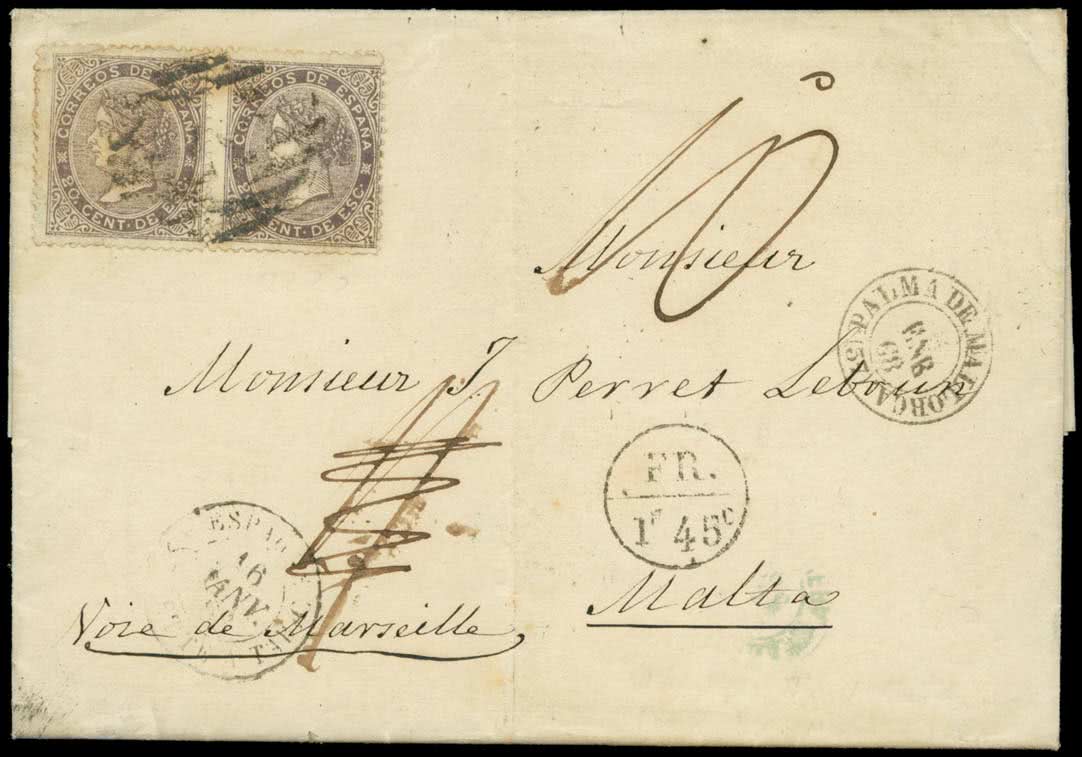 CORREOS DE ESPAÑA
20. CENT. DE ESC.
CORREOS DE ESPAÑA
CENT. DE ESC.
10
Monsieur
PALMA DE MALLORCA
ENE
68
Monsieur J. Perret Leboun
FR.
1F 45C
ESPAG
16
JANV.
Malta
Voie de Marseille